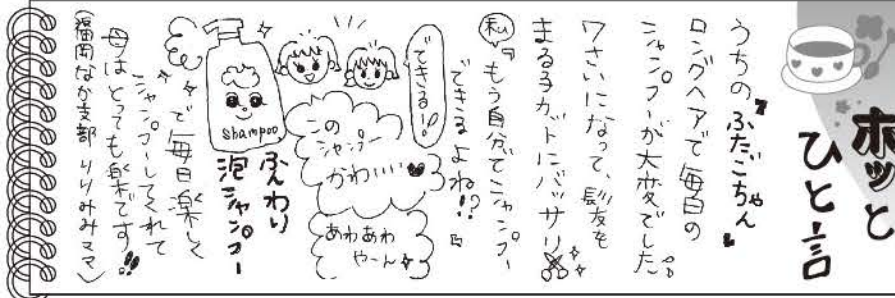 ホッと
ひと言
うちの"ふたごちゃん"
ロングヘアで毎日の
シャンプーが大変でした。
7さいになって、髪を
まる子カットにバッサリ
私「もう自分でシャンプー
できるよね!?」
できるー!!
このシャンプー
かわいい
あわあわ
やーん
shampoo
ふんわり
泡シャンプー
で毎日楽しく
シャンプーしてくれて
母はとっても楽です!!
(福岡なか支部 りりみみママ)